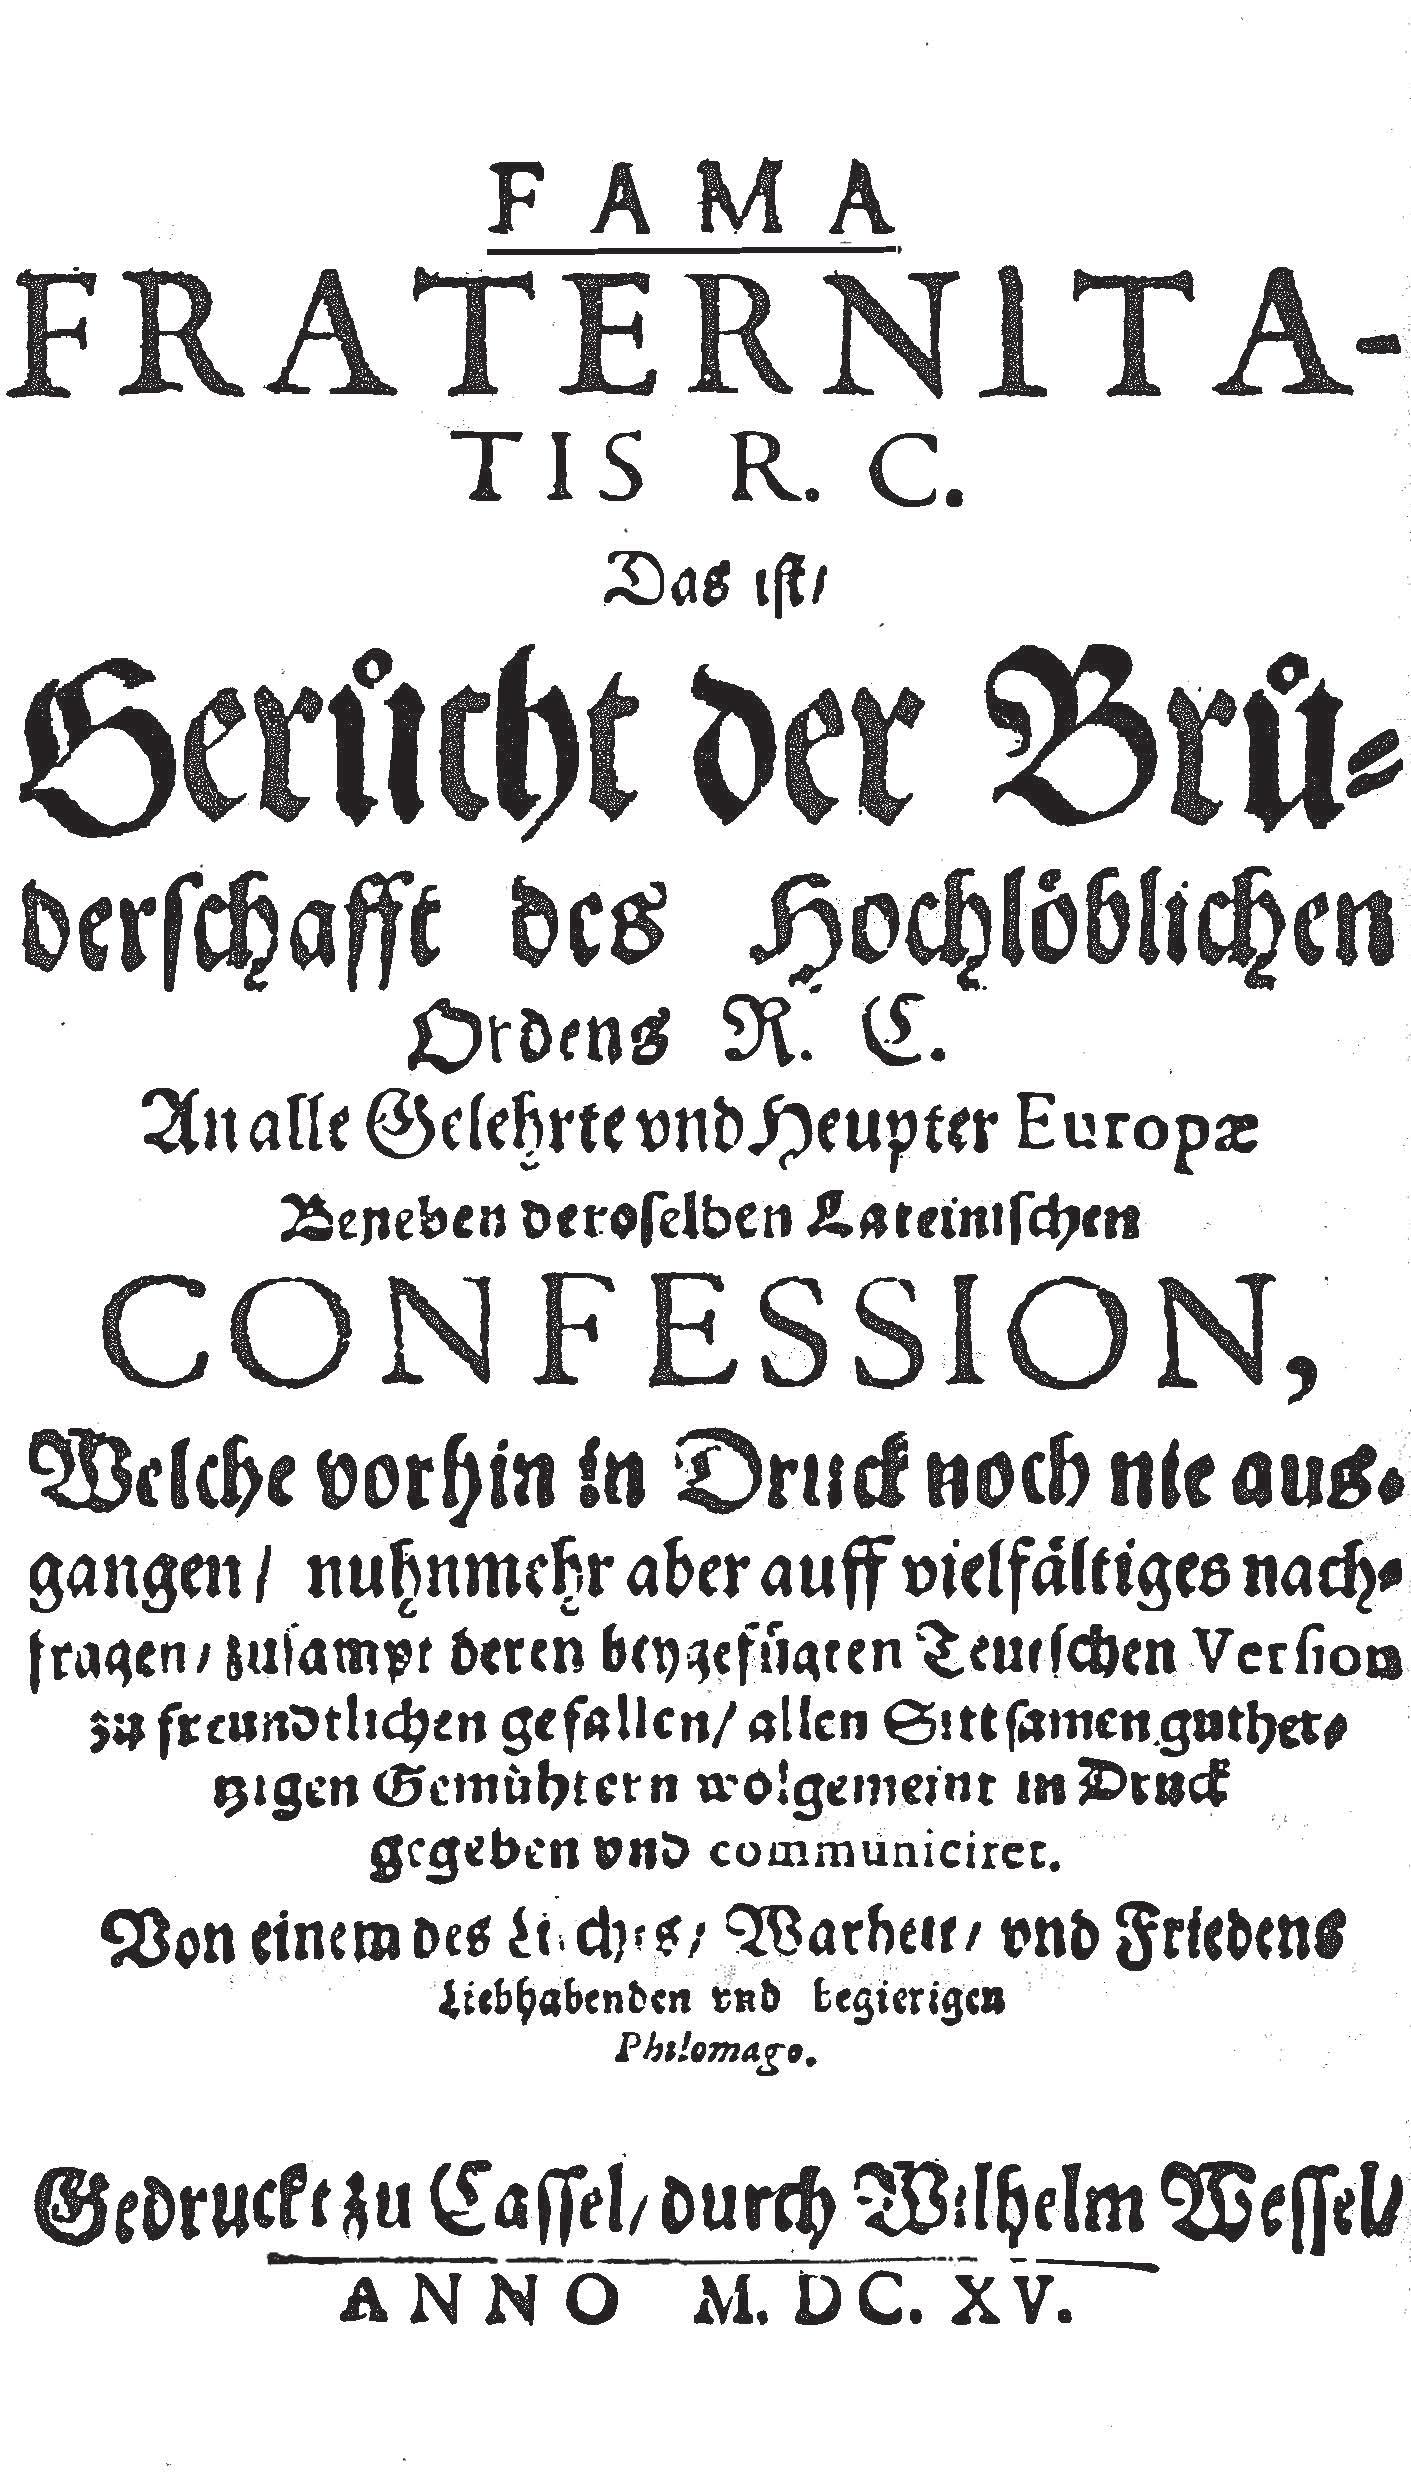 FAMA
FRATERNITA-
TIS R. C.
Das ist/
Gerůcht der Brů-
derschafft des Hochlöblichen
Ordens R. C.
An alle Gelehrte vnd Heupter Europæ
Beneben deroselben Lateinischen
CONFESSION,
Welche vorhin in Druck noch nie aus-
gangen/ nuhnmehr aber auff vielfältiges nach-
fragen/ zusampt deren beygefügten Teutschen Version
zu freundtlichen gefallen/ allen Sittsamen guther-
tzigen Gemühtern wolgemeint in Druck
gegeben vnd communiciret.
Von einem des Liechts/ Warheit/ vnd Friedens
Liebhabenden vnd begierigen
Philomago.
Gedruckt zu Cassel/ durch Wilhelm Wessel/
ANNO M. DC. XV.